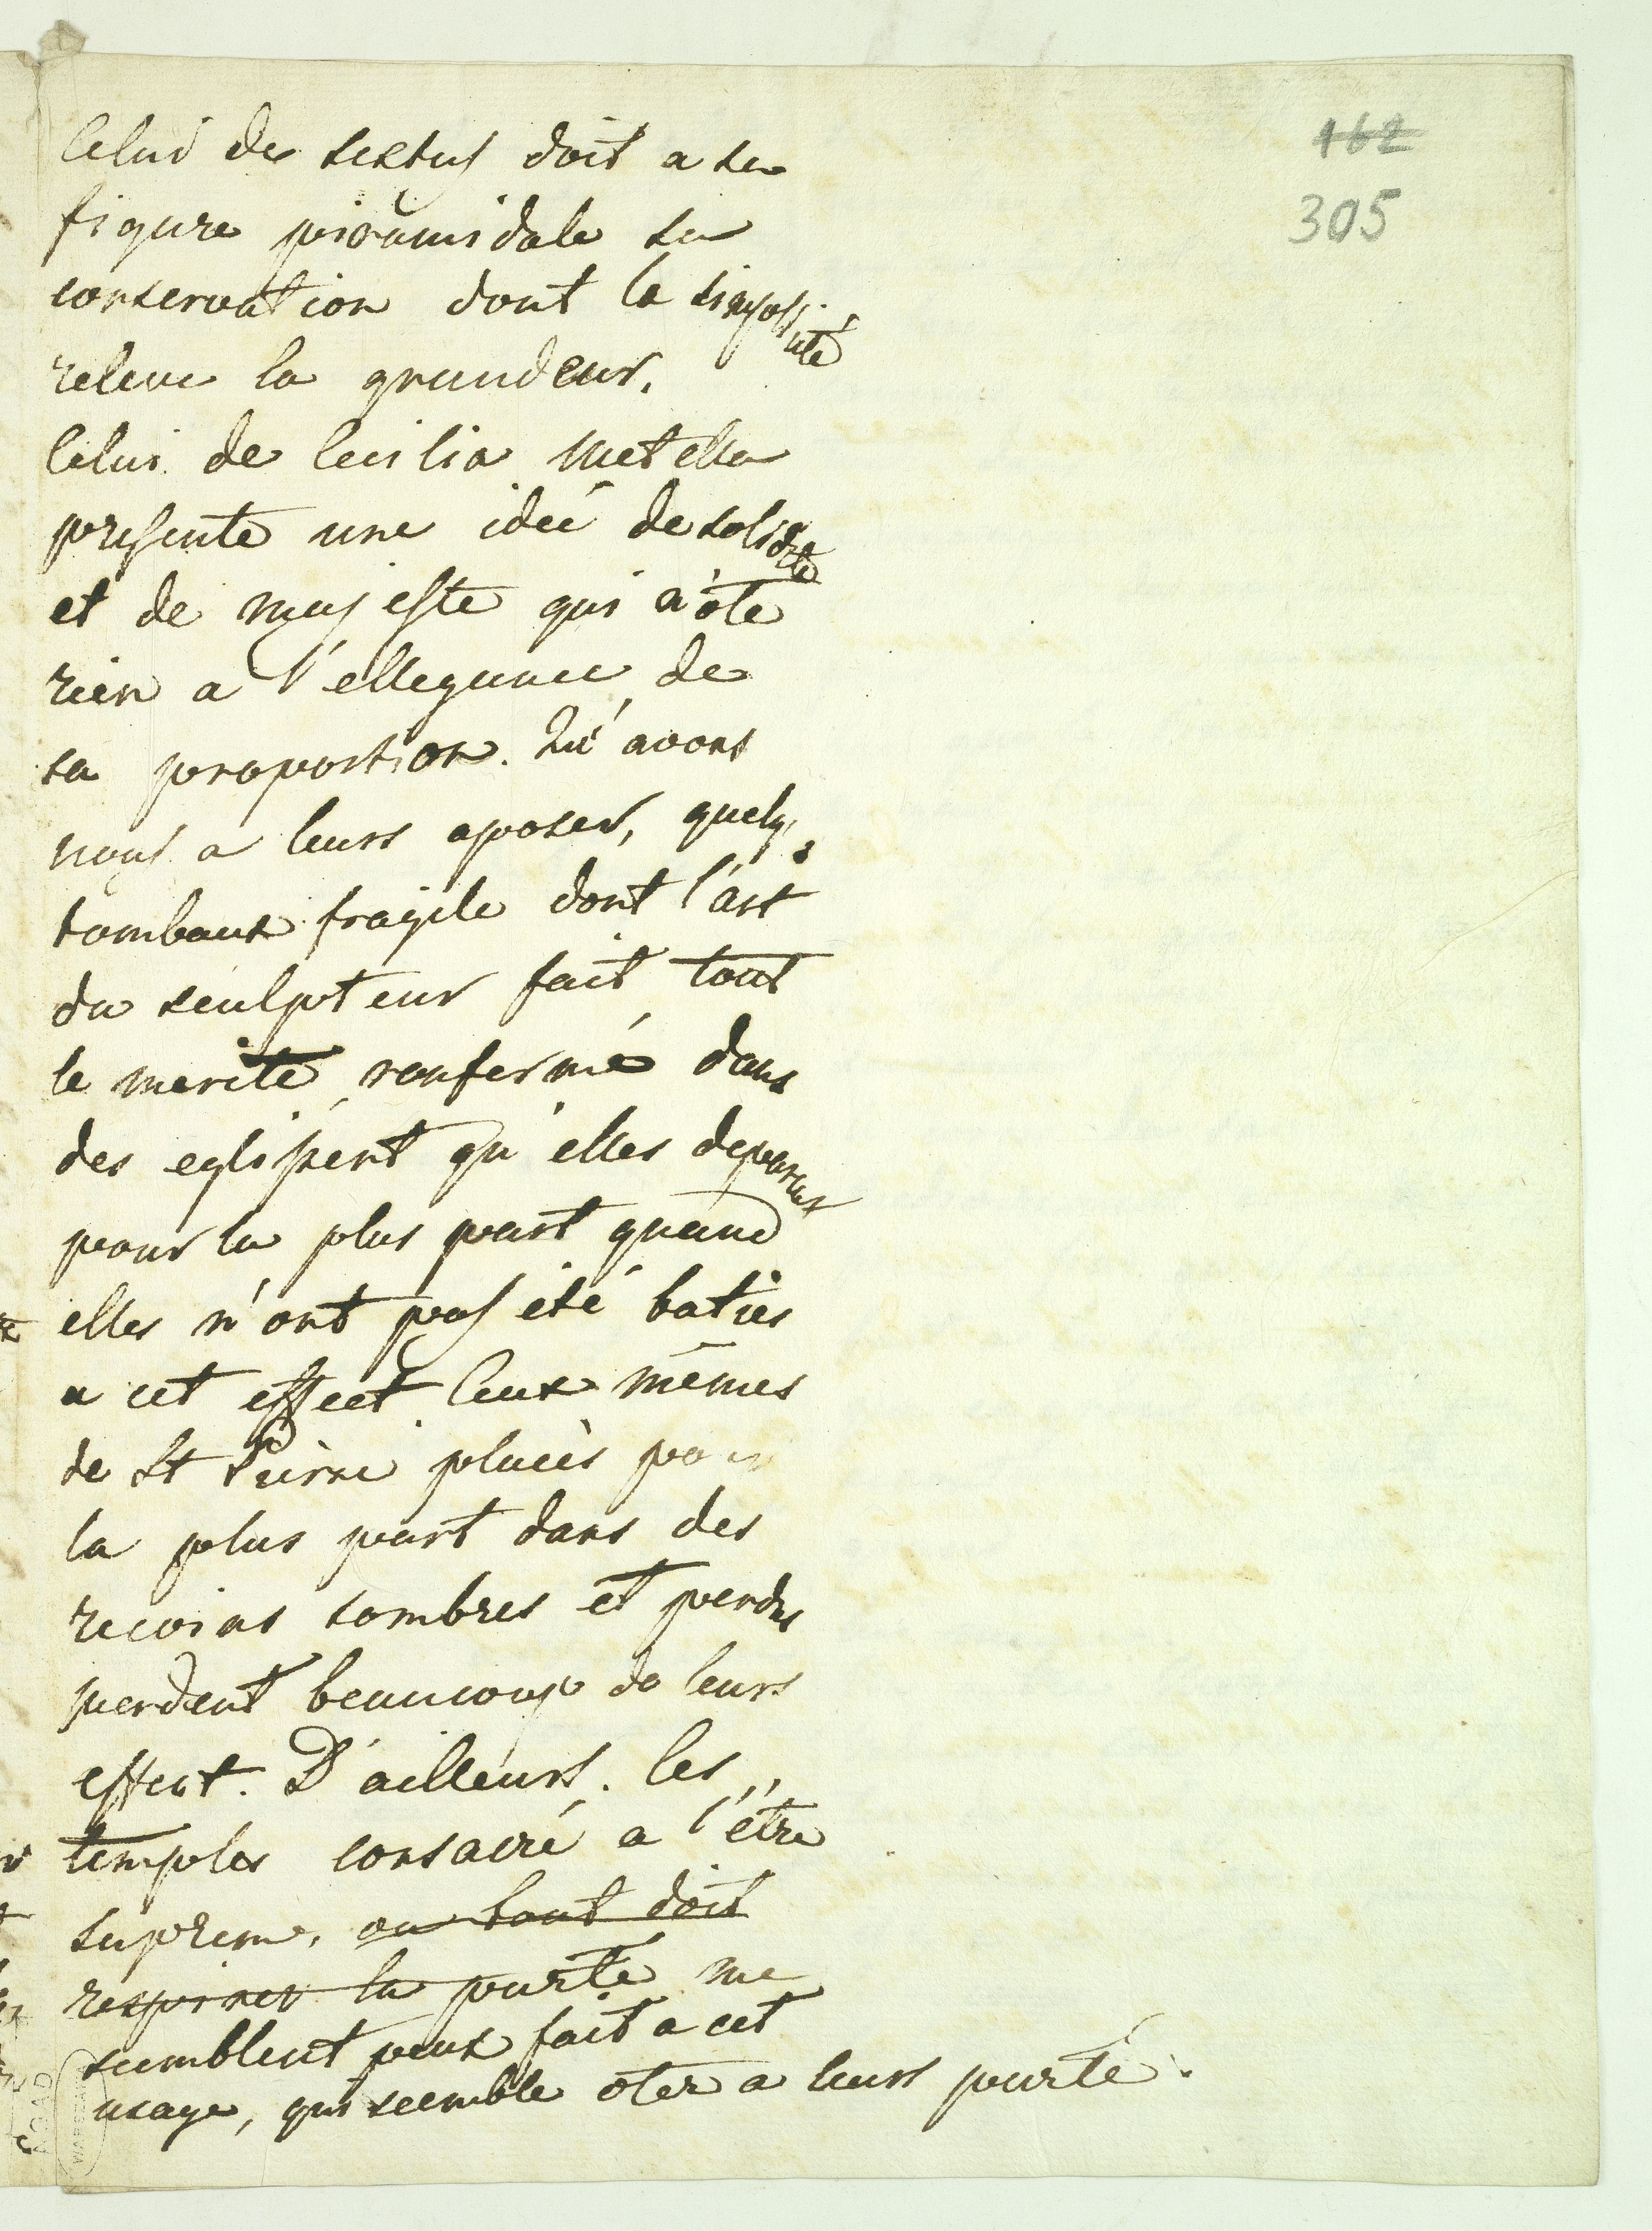 162
305
Celui de sextus doit a sa
figure piramidale sa
conservation dont la simpli
cité
releve la grandeur.
Celui de Cecilia Metella
presente une ideé de solidi
té
et de majeste qui n'ôte
rien a l'ellegance de
sa proportion. Qu'avons
nous a leurs oposer, quelqs
tombaux fragile dont l'art
du sculpteur fait tout
le merite, renfermé dans
des eglisent qu'elles deparent
pour la plus part quand
elles n'ont pas été baties
a cet effect. Ceux mêmes
de St Pierre placés pour
la plus part dans des
recoins sombres et perdus
perdent beaucoup de leurs
effect. D'ailleurs. les
temples consacré a l'être
suprem, ou tout doit
respirer la purté me
semblent peux fait a cet
usage, qui seemble oter a leurs purté.